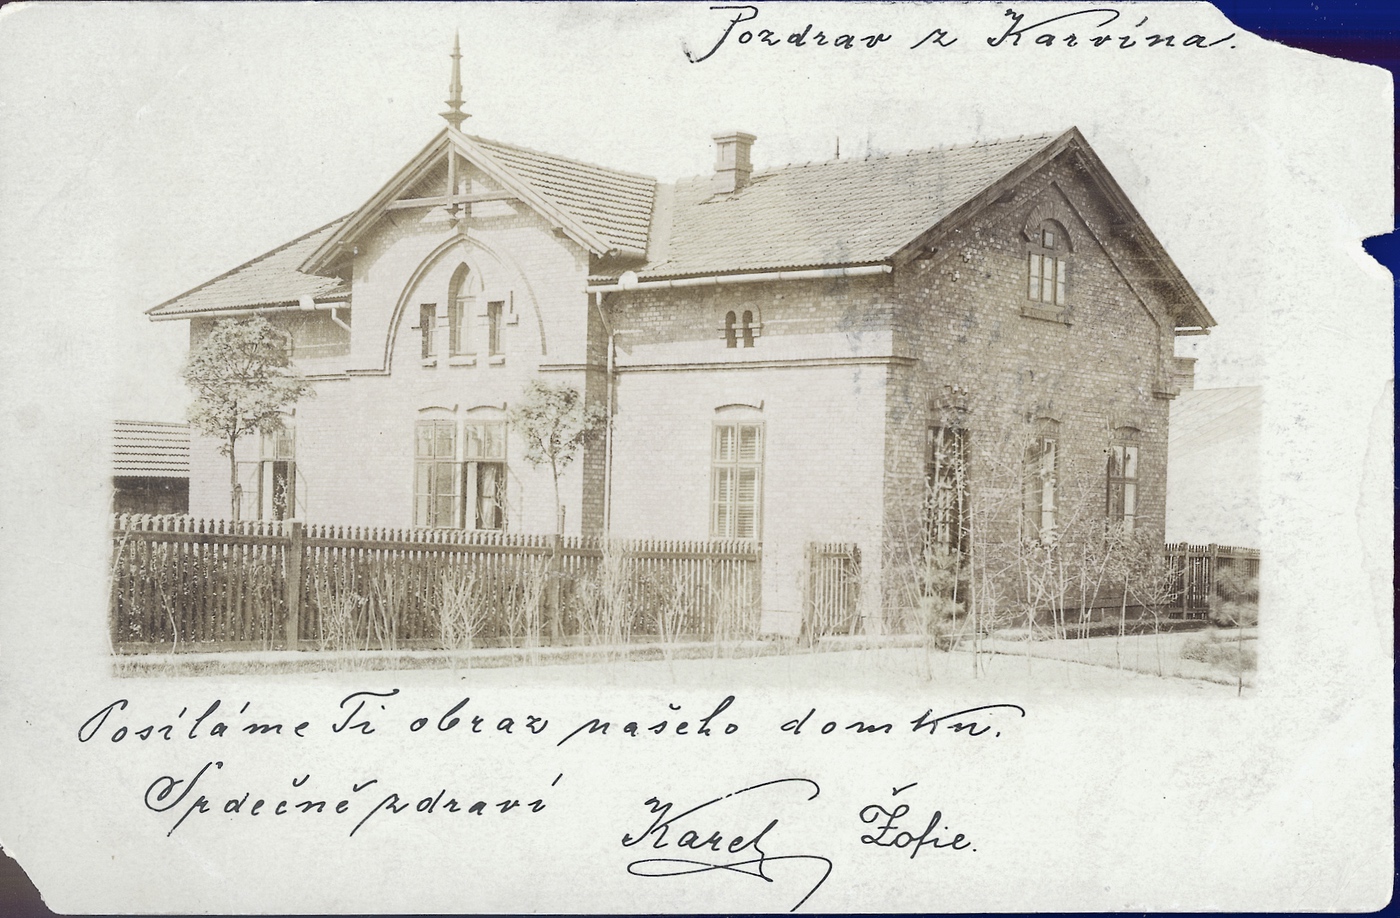 Pozdrav z Karvína.
Posíláme Ti obraz našeho domku.
Srdečně zdraví
Karel Žofie.